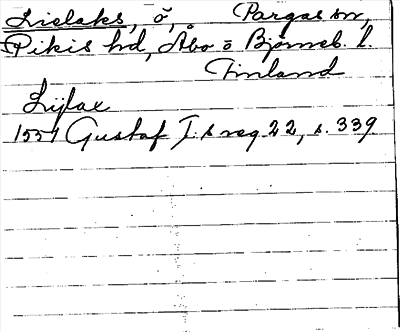 Lielaks, ö, Pargas sn,
Pikis hd, Åbo o Björneb. l.
Finland
Lijlax
1551 Gustaf I:s reg 22, s. 339